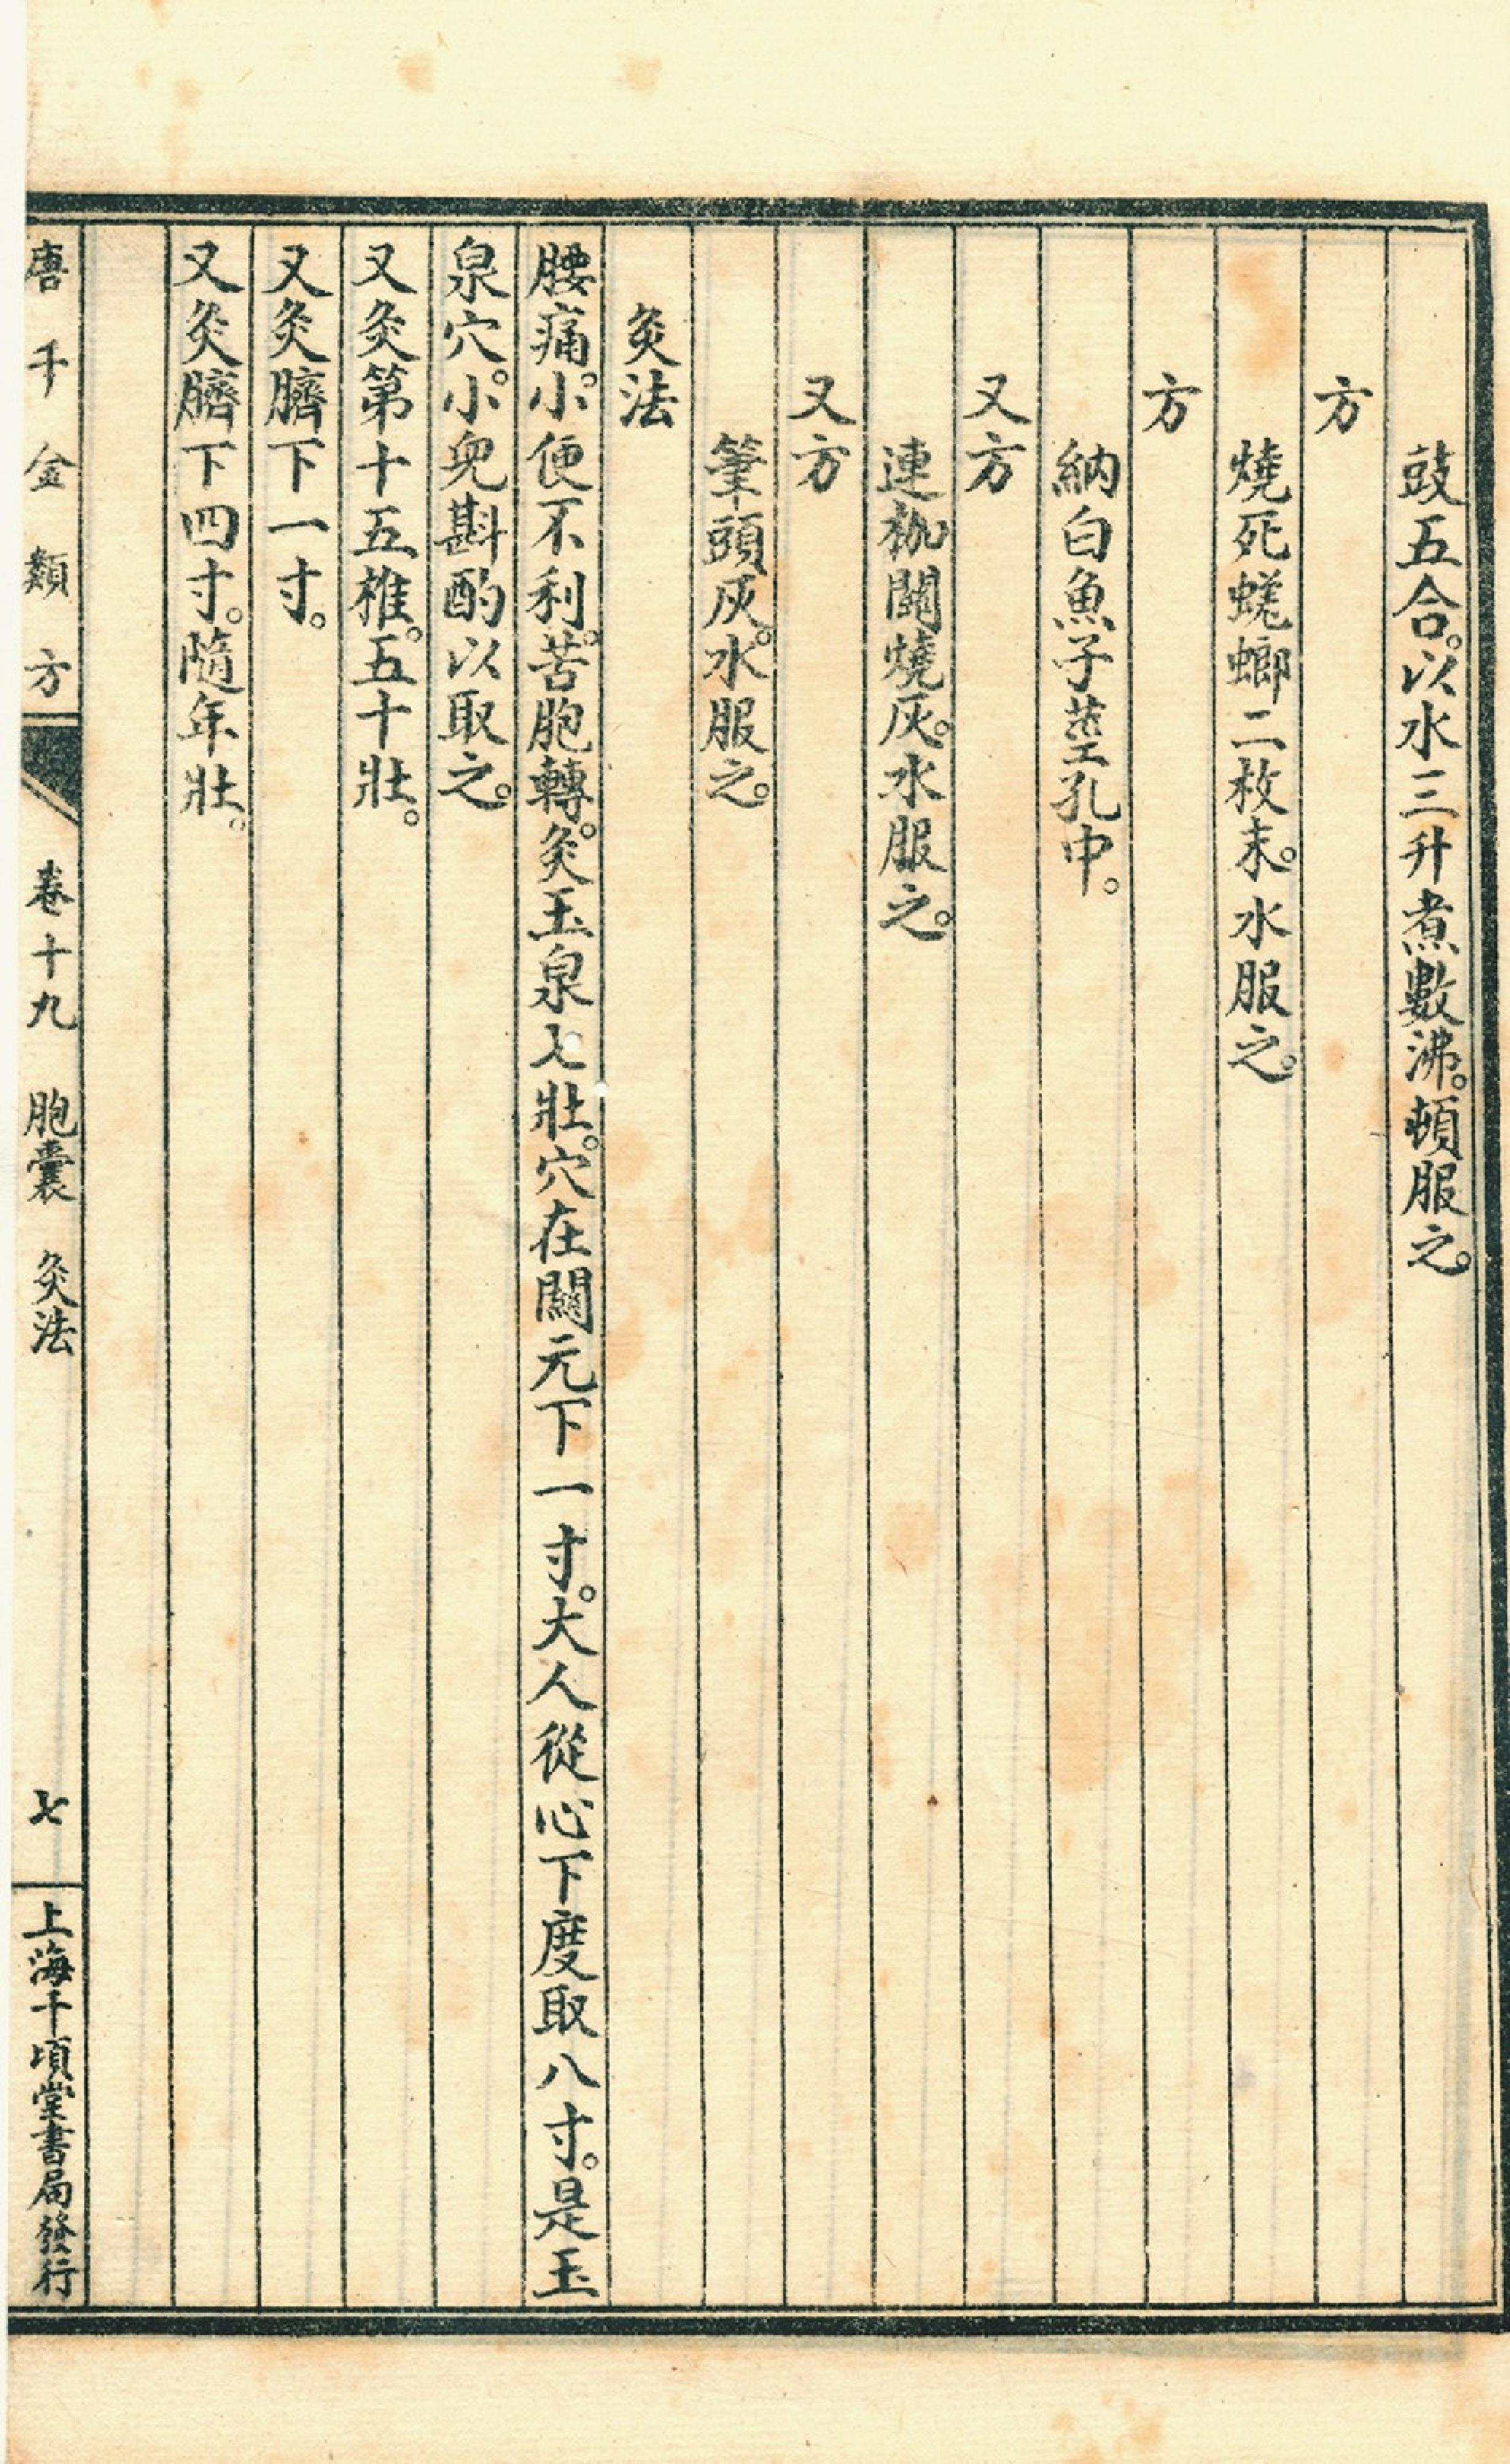 豉五合。以水三升煮數沸。頓服之。
方
燒死蜣螂二枚末。水服之。
方
納白魚子莖孔中。
又方
連枷關燒灰。水服之。
又方
筆頭灰。水服之。
灸法
腰痛。小便不利。苦胞轉。灸玉泉七壯。穴在關元下一寸。大人從心下度取八寸。是玉
泉穴。小兒斟酌以取之。
又灸第十五椎。五十壯。
又灸臍下一寸。
又灸臍下四寸。隨年壯。
唐千金類方 卷十九 胞囊 灸法 七 上海千頃堂書局發行